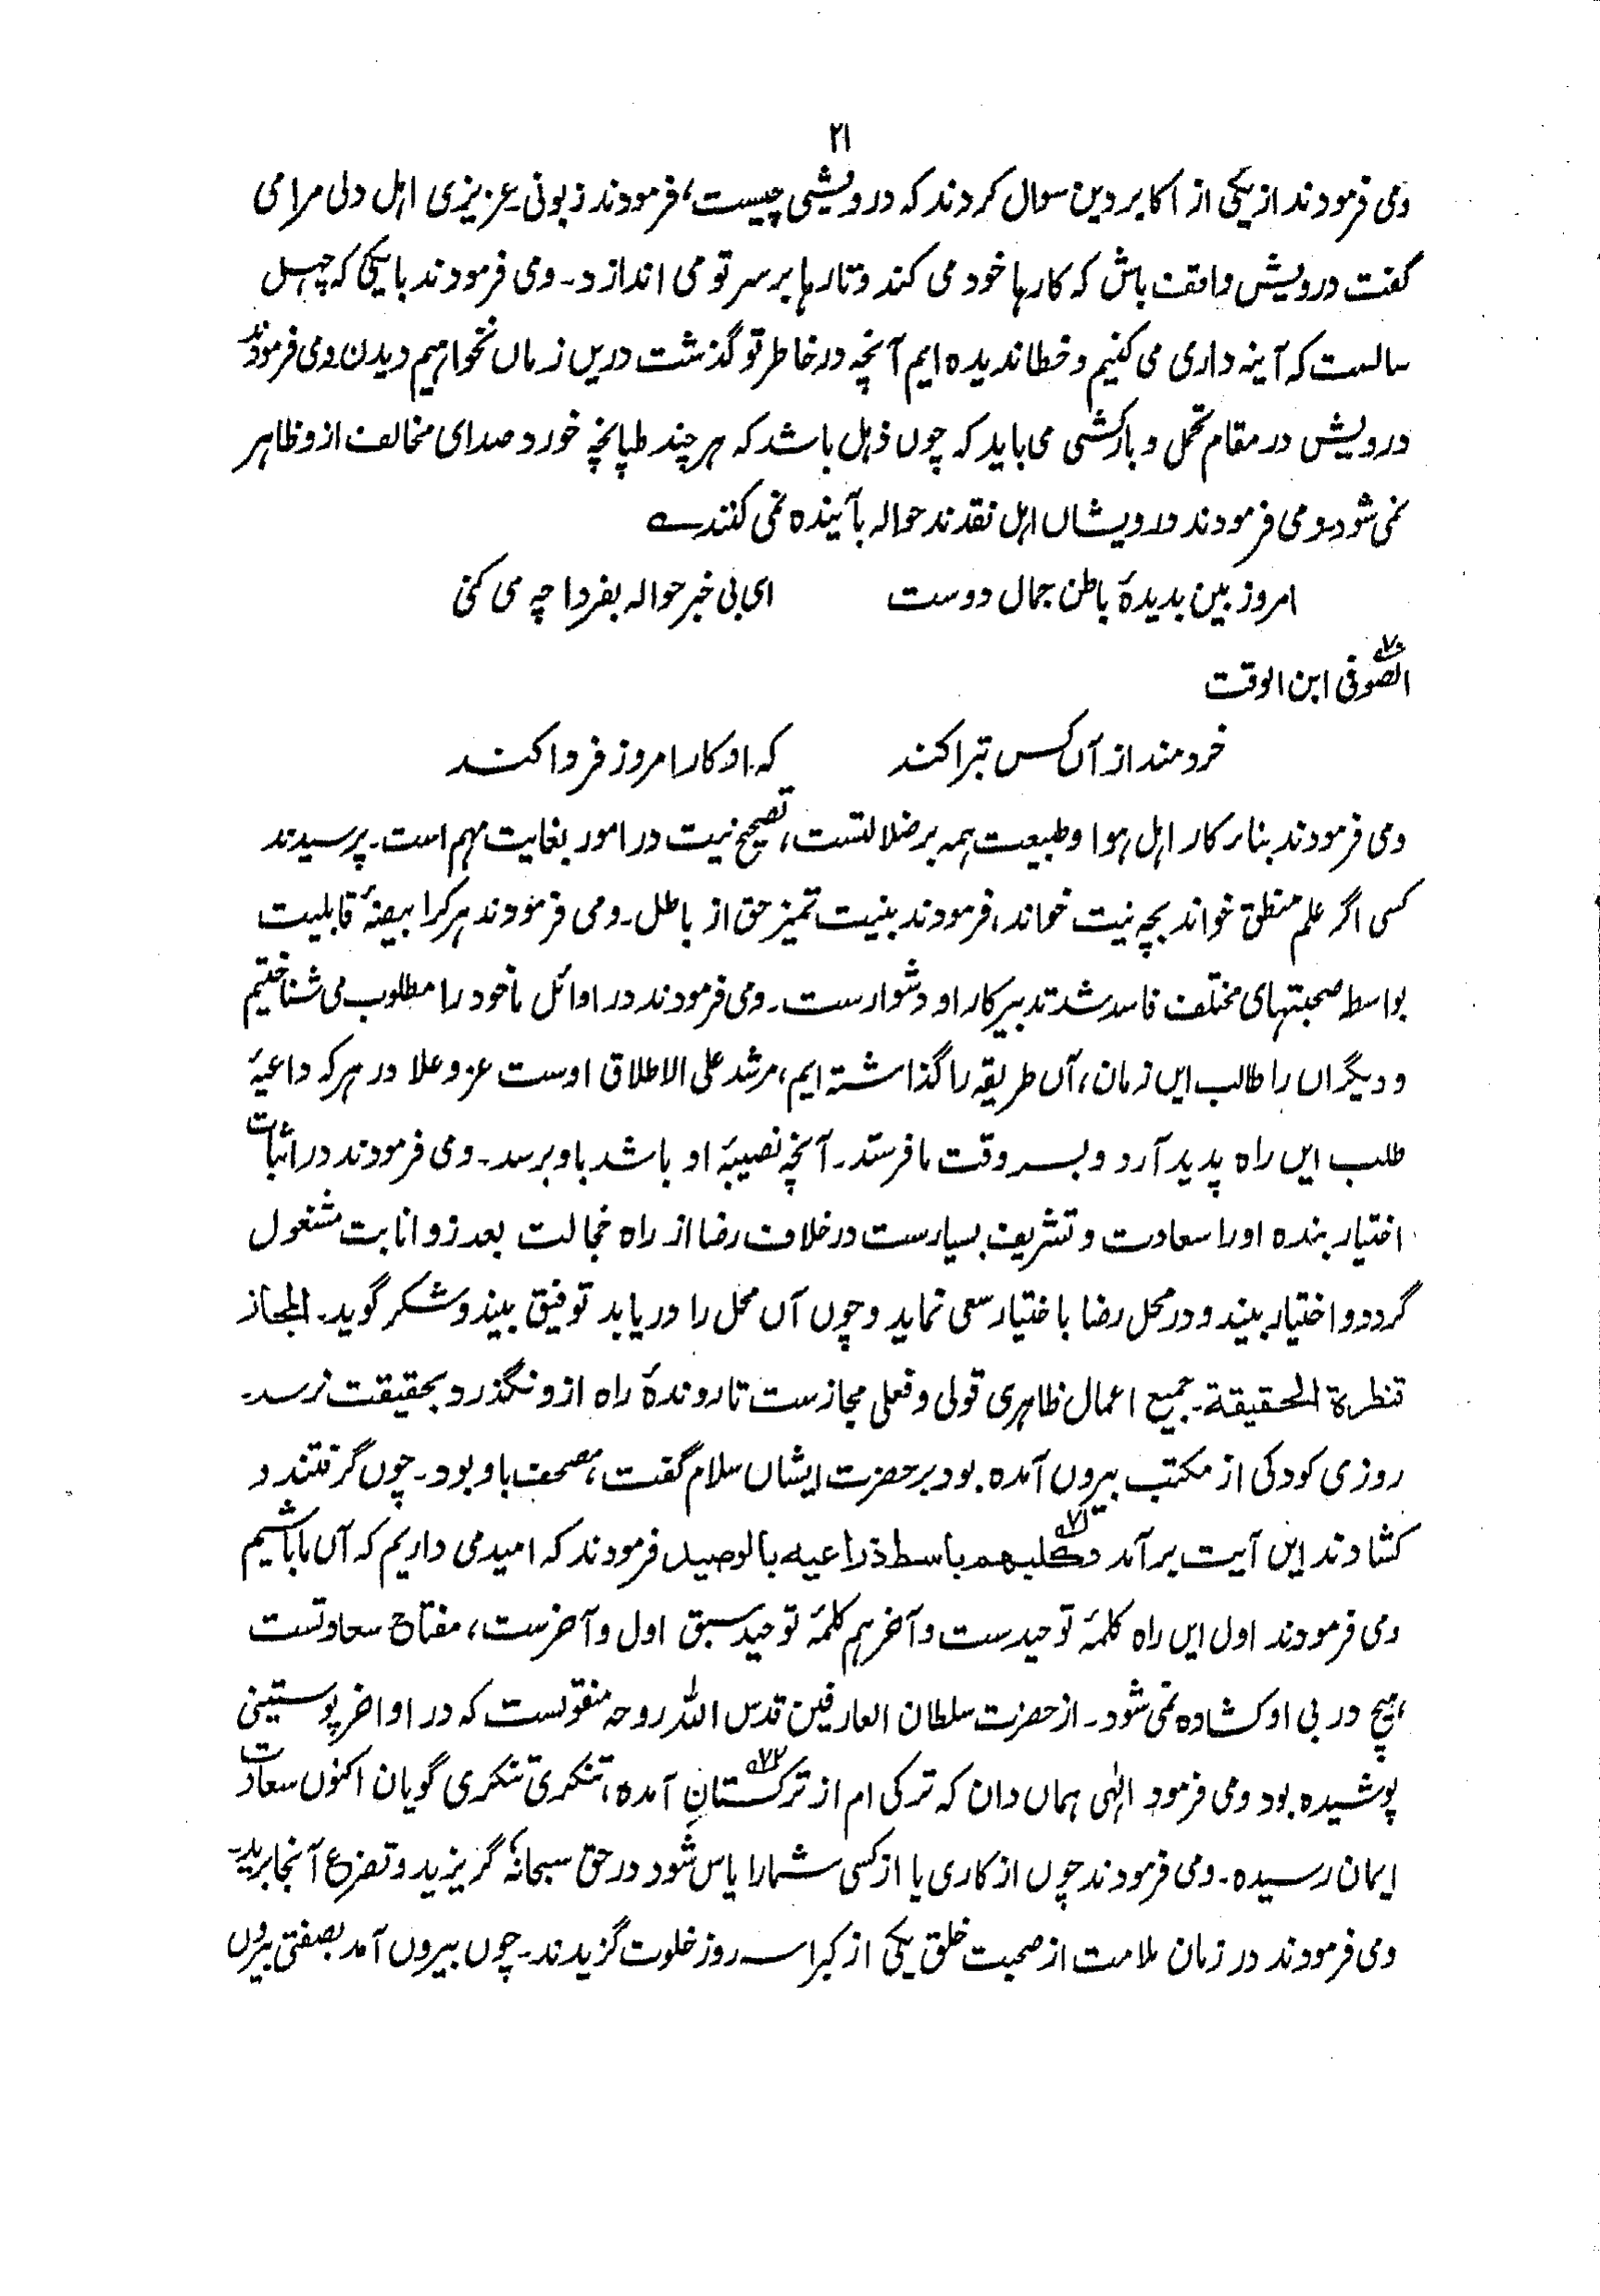 ۲۱
ومی فرمودند از یکی از اکابر دین سوال کردند که درویشی چیست، فرمودند زبونی۔ عزیزی اہل دلی مرا می
گفت درویش واقف باش که کارہا خود می کند و تارہا بر سر تو می اندازد۔ ومی فرمودند با یکی که چہل
سالست که آینہ داری می کنیم و خطا ندیده ایم آنچہ در خاطر تو گذشت دریں زماں نخواہیم دیدن۔ ومی فرمودند
درویش در مقام تحمل و بارکشی می باید که چوں دُہل باشد که ہر چند طپانچہ خورد صدای مخالف ازو ظاہر
نمی شود۔ ومی فرمودند درویشاں اہل نقدند حوالہ بآینده نمی کنند ؎
امروز بین بدیدۂ باطن جمال دوست ای بی خبر حوالہ بفردا چہ می کنی
الصوفی ابن الوقت ۷۰
خردمند از آں کس تبرا کند کہ او کار امروز فردا کند
ومی فرمودند بناء کار اہل ہوا و طبیعت ہمہ بر ضلالتست، تصحیح نیت در امور بغایت مہم است۔ پرسیدند
کسی اگر علم منطق خواند بچہ نیت خواند، فرمودند بنیت تمیز حق از باطل۔ ومی فرمودند ہر کرا بیضۂ قابلیت
بواسطہ صحبتہای مختلف فاسد شد تدبیر کار او دشوارست۔ ومی فرمودند در اوائل ما خود را مطلوب می شناختیم
و دیگراں را طالب ایں زمان، آں طریقہ را گذاشتہ ایم، مرشد علی الاطلاق اوست عز و علا در ہر کہ داعیۂ
طلب ایں راہ پدید آرد و بسر وقت ما فرستد۔ آنچہ نصیبۂ او باشد باو برسد۔ ومی فرمودند در اثبات
اختیار بنده او را سعادت و تشریف بسیارست در خلاف رضا از راہ خجالت بعذر و انابت مشغول
گردد و اختیار بیند و در محل رضا با ختیار سعی نماید و چوں آں محل را دریابد توفیق بیند و شکر گوید۔ المجاز
قنطرة الحقیقة۔ جمیع اعمال ظاہری قولی و فعلی مجازست تا روندۂ راہ ازو نگذرد بحقیقت نرسد۔
روزی کودکی از مکتب بیروں آمده بود بر حضرت ایشاں سلام گفت، مصحف با او بود۔ چوں گرفتند و
کشادند ایں آیت بر آمد وکلبهم باسط ذراعیه بالوصید ۷۱ فرمودند کہ امید می داریم کہ آں ما باشیم
ومی فرمودند اول ایں راہ کلمۂ توحیدست و آخر ہم کلمۂ توحید سبق اول و آخرست، مفتاح سعادتست
ہیچ در بی او کشاده نمی شود۔ از حضرت سلطان العارفین قدس اللہ روحہ منقولست کہ در اواخر پوستینی
پوشیده بود ومی فرمود الہٰی ہماں دان کہ ترکی ام از ترکستان ۷۲ آمده، تنکری تنکری گویان اکنوں سعادت
ایمان رسیده۔ ومی فرمودند چوں از کاری یا از کسی شما را یاس شود در حق سبحانہٗ گریزید و تضرع آنجا برید۔
ومی فرمودند در زمان ملامت از صحبت خلق یکی از کبرا سہ روز خلوت گزیدند۔ چوں بیروں آمد بصفتی بیروں